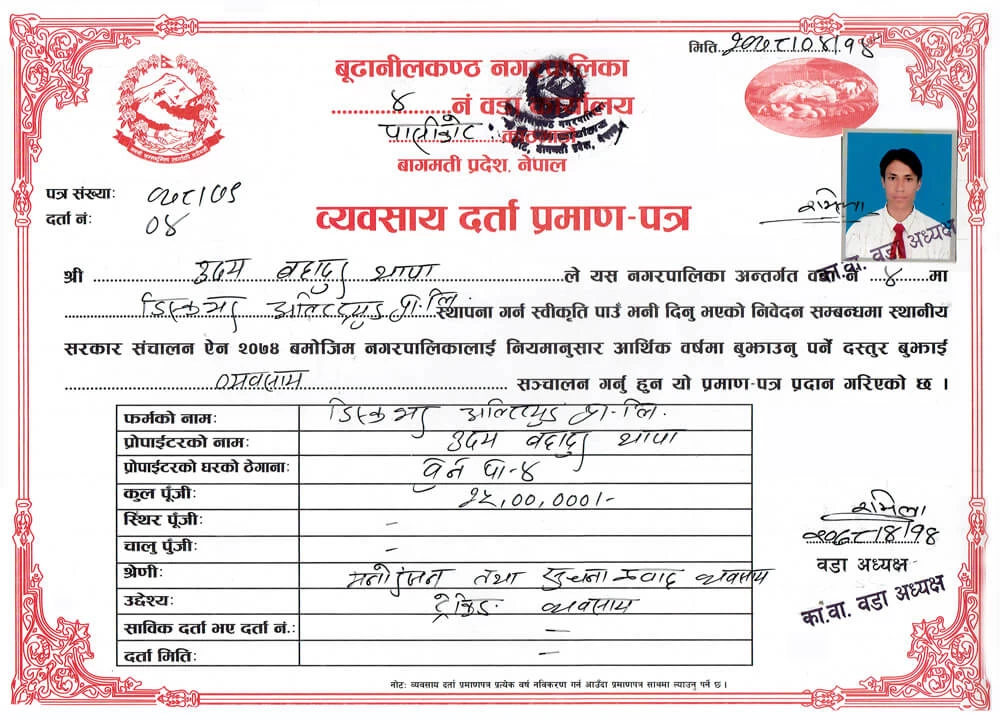 मिति २०७८।०४।१४
बूढानीलकण्ठ नगरपालिका
४ नं वडा कार्यालय
बागमती प्रदेश, नेपाल
पत्र संख्याः ०७८।७९
दर्ता नंः ०४
व्यवसाय दर्ता प्रमाण-पत्र
शर्मिला
का.वा. वडा अध्यक्ष
श्री उदम बहादुर थापा ले यस नगरपालिका अन्तर्गत वडा नं ४ मा
डिस्कभर अल्टिच्युड प्रा.लि. स्थापना गर्न स्वीकृति पाउँ भनी दिनु भएको निवेदन सम्बन्धमा स्थानीय
सरकार संचालन ऐन २०७४ बमोजिम नगरपालिकालाई नियमानुसार आर्थिक वर्षमा बुझाउनु पर्ने दस्तुर बुझाई
व्यवसाय सञ्चालन गर्नु हुन यो प्रमाण-पत्र प्रदान गरिएको छ ।
फर्मको नामः डिस्कभर अल्टिच्युड प्रा.लि.
प्रोपाईटरको नामः उदम बहादुर थापा
प्रोपाईटरको घरको ठेगानाः
कुल पूँजीः २५,००,०००।-
स्थिर पूँजीः -
चालु पूँजीः -
श्रेणीः मनोरंजन तथा व्यवसाय
उद्देश्यः ट्रेकिङ व्यवसाय
साविक दर्ता भए दर्ता नं.ः -
दर्ता मितिः -
शर्मिला
२०७८।४।१४
वडा अध्यक्ष
का.वा. वडा अध्यक्ष
नोटः व्यवसाय दर्ता प्रमाणपत्र प्रत्येक वर्ष नविकरण गर्न आउँदा प्रमाणपत्र साथमा ल्याउनु पर्ने छ ।